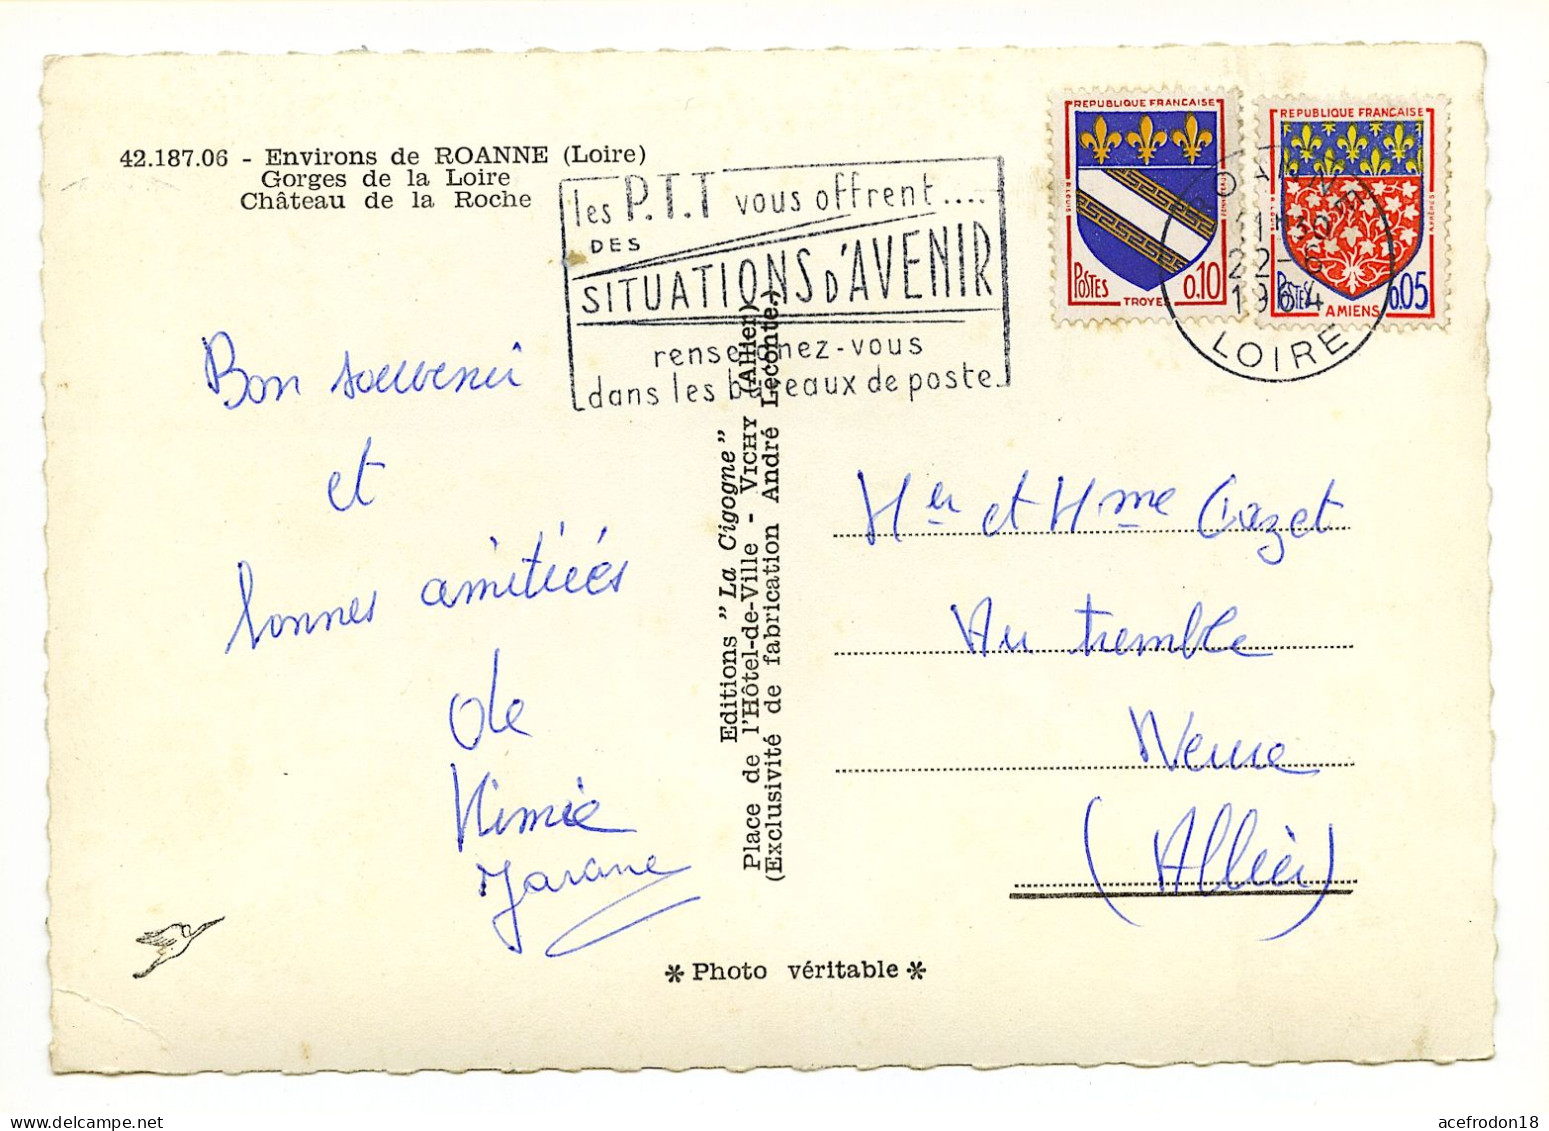 42.187.06 - Environs de ROANNE (Loire)
Gorges de la Loire
Château de la Roche
les P.T.T vous offrent....
DES
SITUATIONS d'AVENIR
renseignez-vous
dans les bureaux de poste
REPUBLIQUE FRANÇAISE
POSTES
TROYES
0.10
REPUBLIQUE FRANÇAISE
POSTES
AMIENS
0.05
ROANNE
11H30
22-6
1964
LOIRE
Bon souvenir
et
bonnes amitiés
de
Mimie
Editions "La Cigogne"
Place de l'Hôtel-de-Ville - VICHY (Allier)
(Exclusivité de fabrication André Leconte.)
Mr et Mme Cazet
Au tremble
(Allier)
* Photo véritable *
acefrodon18